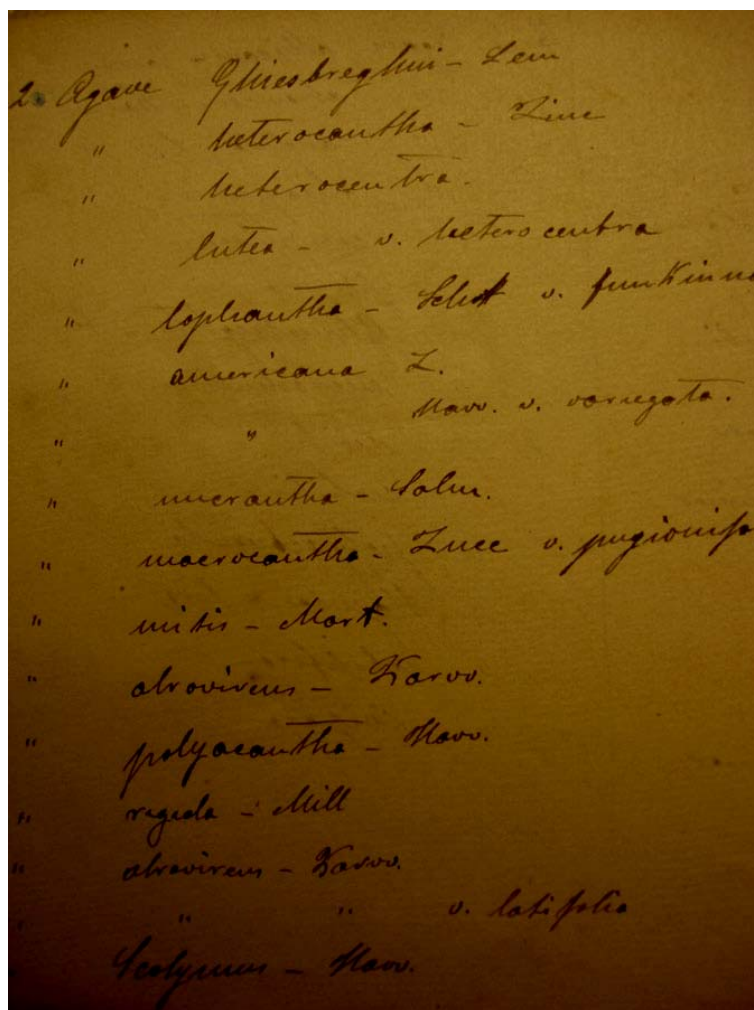 2. Agave Ghiesbreghii - Lem
" heterocantha - Zucc
" heterocentra.
" lutea - v. heterocentra
" lophantha - Schot v. funkinna
" americana L.
" " Haw. v. variegata.
" micrantha - Salm.
" macrocantha - Zucc v. pugionifo
" mitis - Mart.
" atrovirens - Karw.
" polyacantha - Haw.
" regida - Mill
" atrovirens - Karw.
" " " v. latifolia
Scolymus - Haw.